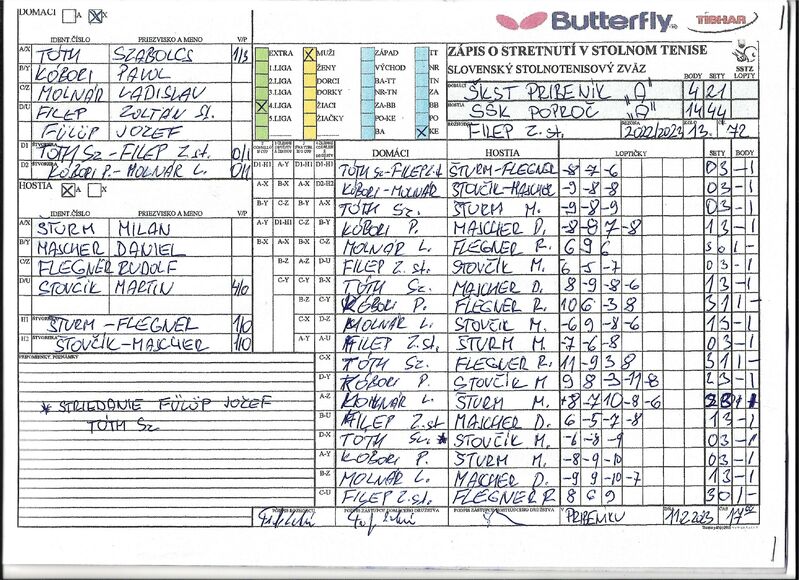 DOMÁCI A X
IDENT.ČÍSLO PRIEZVISKO A MENO V/P
A/X TÓTH SZABOLCS 1/3
B/Y KÓBORI PAVOL
C/Z MOLNÁR LADISLAV
D/U FILEP ZOLTÁN St.
FÜLÜP JOZEF
D1 TÓTH Sz - FILEP Z. st. 0/1
D2 KÓBORI P. - MOLNÁR L. 0/1
HOSTIA A X
IDENT.ČÍSLO PRIEZVISKO A MENO V/P
A/X ŠTURM MILAN
B/Y MASCHER DANIEL
C/Z FLEGNER RUDOLF
D/U STOVČÍK MARTIN 4/0
H1 ŠTURM - FLEGNER 1/0
H2 STOVČÍK - MASCHER 1/0
PRIPOMIENKY, POZNÁMKY
* STRIEDANIE FÜLÜP JOZEF
TÓTH Sz
EXTRA MUŽI ZÁPAD TT
1.LIGA ŽENY VÝCHOD NR
2.LIGA DORCI BA-TT TN
3.LIGA DORKY NR-TN ZA
4.LIGA ŽIACI ZA-BB BB
5.LIGA ŽIAČKY PO-KE PO
BA KE
Butterfly TIBHAR
ZÁPIS O STRETNUTÍ V STOLNOM TENISE
SLOVENSKÝ STOLNOTENISOVÝ ZVÄZ SSTZ
BODY SETY LOPTY
DOMÁCI ŠKST PRIBENÍK "A" 4 21
HOSTIA SŠK POPROČ "A" 14 44
FILEP Z. st. SEZÓNA 2022/2023 13. 72
DOMÁCI HOSTIA LOPTIČKY SETY BODY
D1-H1 TÓTH Sz-FILEP Z.st ŠTURM-FLEGNER -8 -7 -6 03 -1
D2-H2 KÓBORI-MOLNÁR STOVČÍK-MASCHER -9 -8 -8 03 -1
A-X TÓTH Sz. ŠTURM M. -9 -8 -9 03 -1
B-Y KÓBORI P. MASCHER D. -8 -8 7 -8 13 -1
C-Z MOLNÁR L. FLEGNER R. 6 9 6 30 1-
D-U FILEP Z. st. STOVČÍK M. 03 -1
B-X TÓTH Sz. MASCHER D. 8 -9 -8 -6 13 -1
KÓBORI P. FLEGNER R. 10 6 -3 8 31 1-
MOLNÁR L. STOVČÍK M. -6 9 -8 -6 13 -1
A-U FILEP Z.st ŠTURM M. -7 -6 -8 03 -1
C-X TÓTH Sz. FLEGNER R. 11 -9 3 8 31 1-
D-Y KÓBORI P. STOVČÍK M. 9 8 -3 -11 -8 23 -1
A-Z MOLNÁR L. ŠTURM M. 8 -7 10 -8 -6
B-U FILEP Z.st MASCHER D. 6 -5 -7 -8 13 -1
D-X TÓTH Sz. * STOVČÍK M. -6 -8 -9 03 -1
A-Y KÓBORI P. ŠTURM M. -8 -9 -10 03 -1
B-Z MOLNÁR L. MASCHER D. -9 9 -10 -7 13 -1
C-U FILEP Z.st. FLEGNER R 8 6 9 30 1-
PODPIS ZÁSTUPCU DOMÁCEHO DRUŽSTVA PODPIS ZÁSTUPCU HOSŤUJÚCEHO DRUŽSTVA V PRIBENÍKU DŇA 11.2.2023 ČAS 17